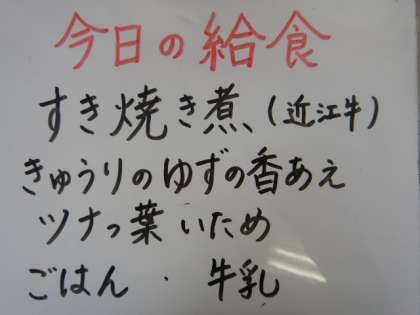 今日の給食
すき焼き煮、(近江牛)
きゅうりのゆずの香あえ
ツナっ葉 いため
ごはん ・ 牛乳